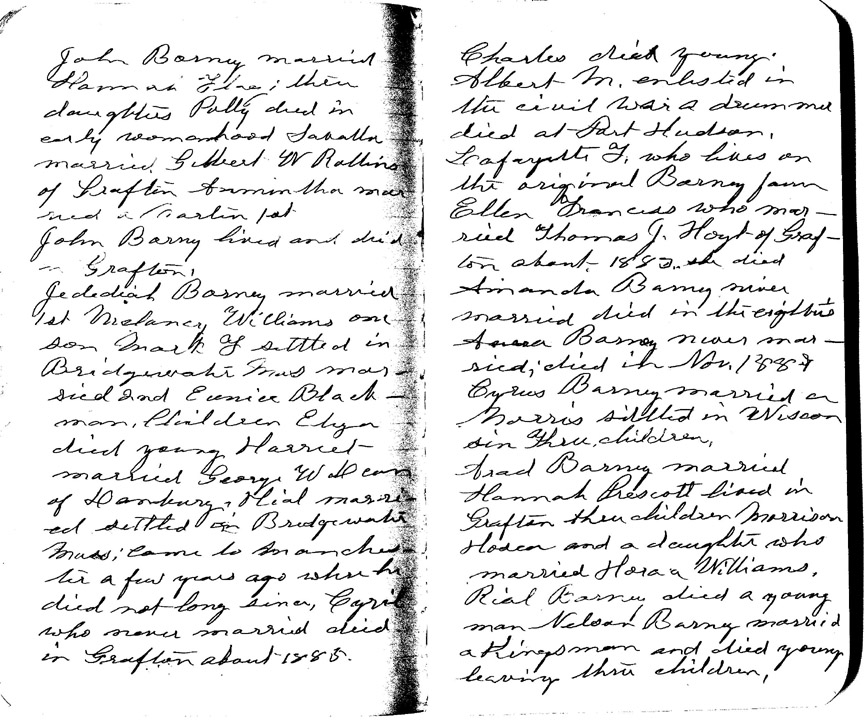 John Barney married
Hannah Flag; their
daughters Polly died in
early womanhood Savalla
married Gilbert W Rollins
of Grafton Armintha mar
ried a Martin 1st
John Barny lived and died
in Grafton.
Jedediah Barney married
1st Melancy Williams one
son Mark F settled in
Bridgewater Mass mar-
ried 2nd Eunice Black-
man. Children Elyza
died young Harriet
married George W Dean
of Danbury. Hial marri-
ed settled in Bridgewater
Mass; came to Manches-
ter a few years ago where he
died not long since, Cyril
who never married died
in Grafton about 1885.
Charles died young.
Albert M. enlisted in
the civil war a drummer
died at Port Hudson.
Lafayette F. who lives on
the original Barney farm
Ellen Frances who mar-
ried Thomas J. Hoyt of Graf-
ton about 1883. she died
Amanda Barney never
married died in the eighties
Barney never mar-
ried; died in Nov. 1887
Cyrus Barney married a
Morris settled in Wiscon
sin Three children,
Arad Barney married
Hannah Prescott lived in
Grafton three children Morrison
Hosea and a daughter who
married Horace Williams.
Rial Barney died a young
man Nelson Barney married
a Kingsman and died young
leaving three children,